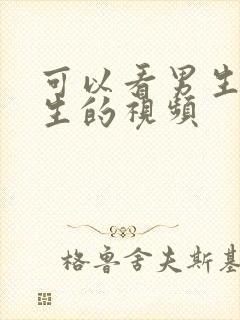 可以看男生
生的視頻
格魯舍夫斯基